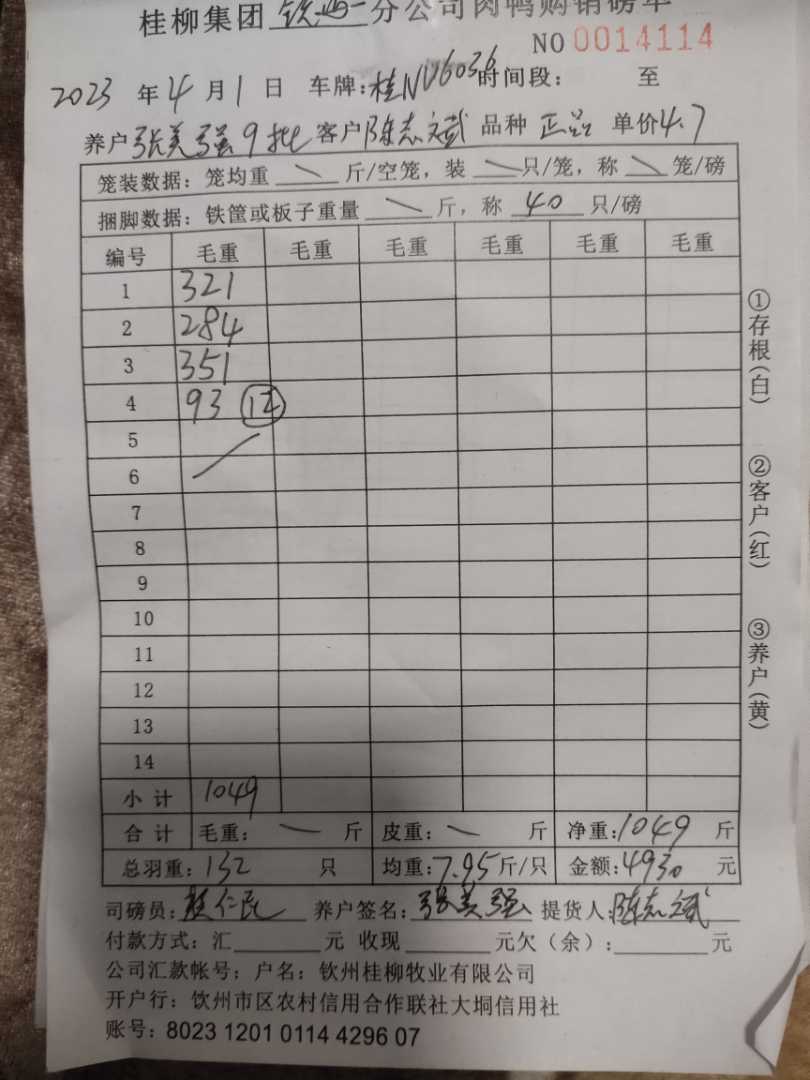 桂柳集团 钦州一分公司肉鸭购销磅单
NO 0014114
2023 年 4 月 1 日 车牌:桂NU6036 时间段: 至
养户 张美强9批 客户 陈志斌 品种 正品 单价 4.7
笼装数据: 笼均重 \ 斤/空笼, 装 \ 只/笼, 称 \ 笼/磅
捆脚数据: 铁筐或板子重量 \ 斤, 称 40 只/磅
编号 毛重 毛重 毛重 毛重 毛重 毛重
1 321
2 284
3 351
4 93 12
5
6
7
8
9
10
11
12
13
14
小计 1049
合计 毛重: 斤 皮重: 斤 净重: 1049 斤
总羽重: 132 只 均重: 7.95 斤/只 金额: 4930 元
司磅员: 仁民 养户签名: 张美强 提货人: 陈志斌
付款方式: 汇 元 收现 元欠(余): 元
公司汇款帐号; 户名: 钦州桂柳牧业有限公司
开户行: 钦州市区农村信用合作联社大垌信用社
账号: 8023 1201 0114 4296 07
①存根(白)
②客户(红)
③养户(黄)